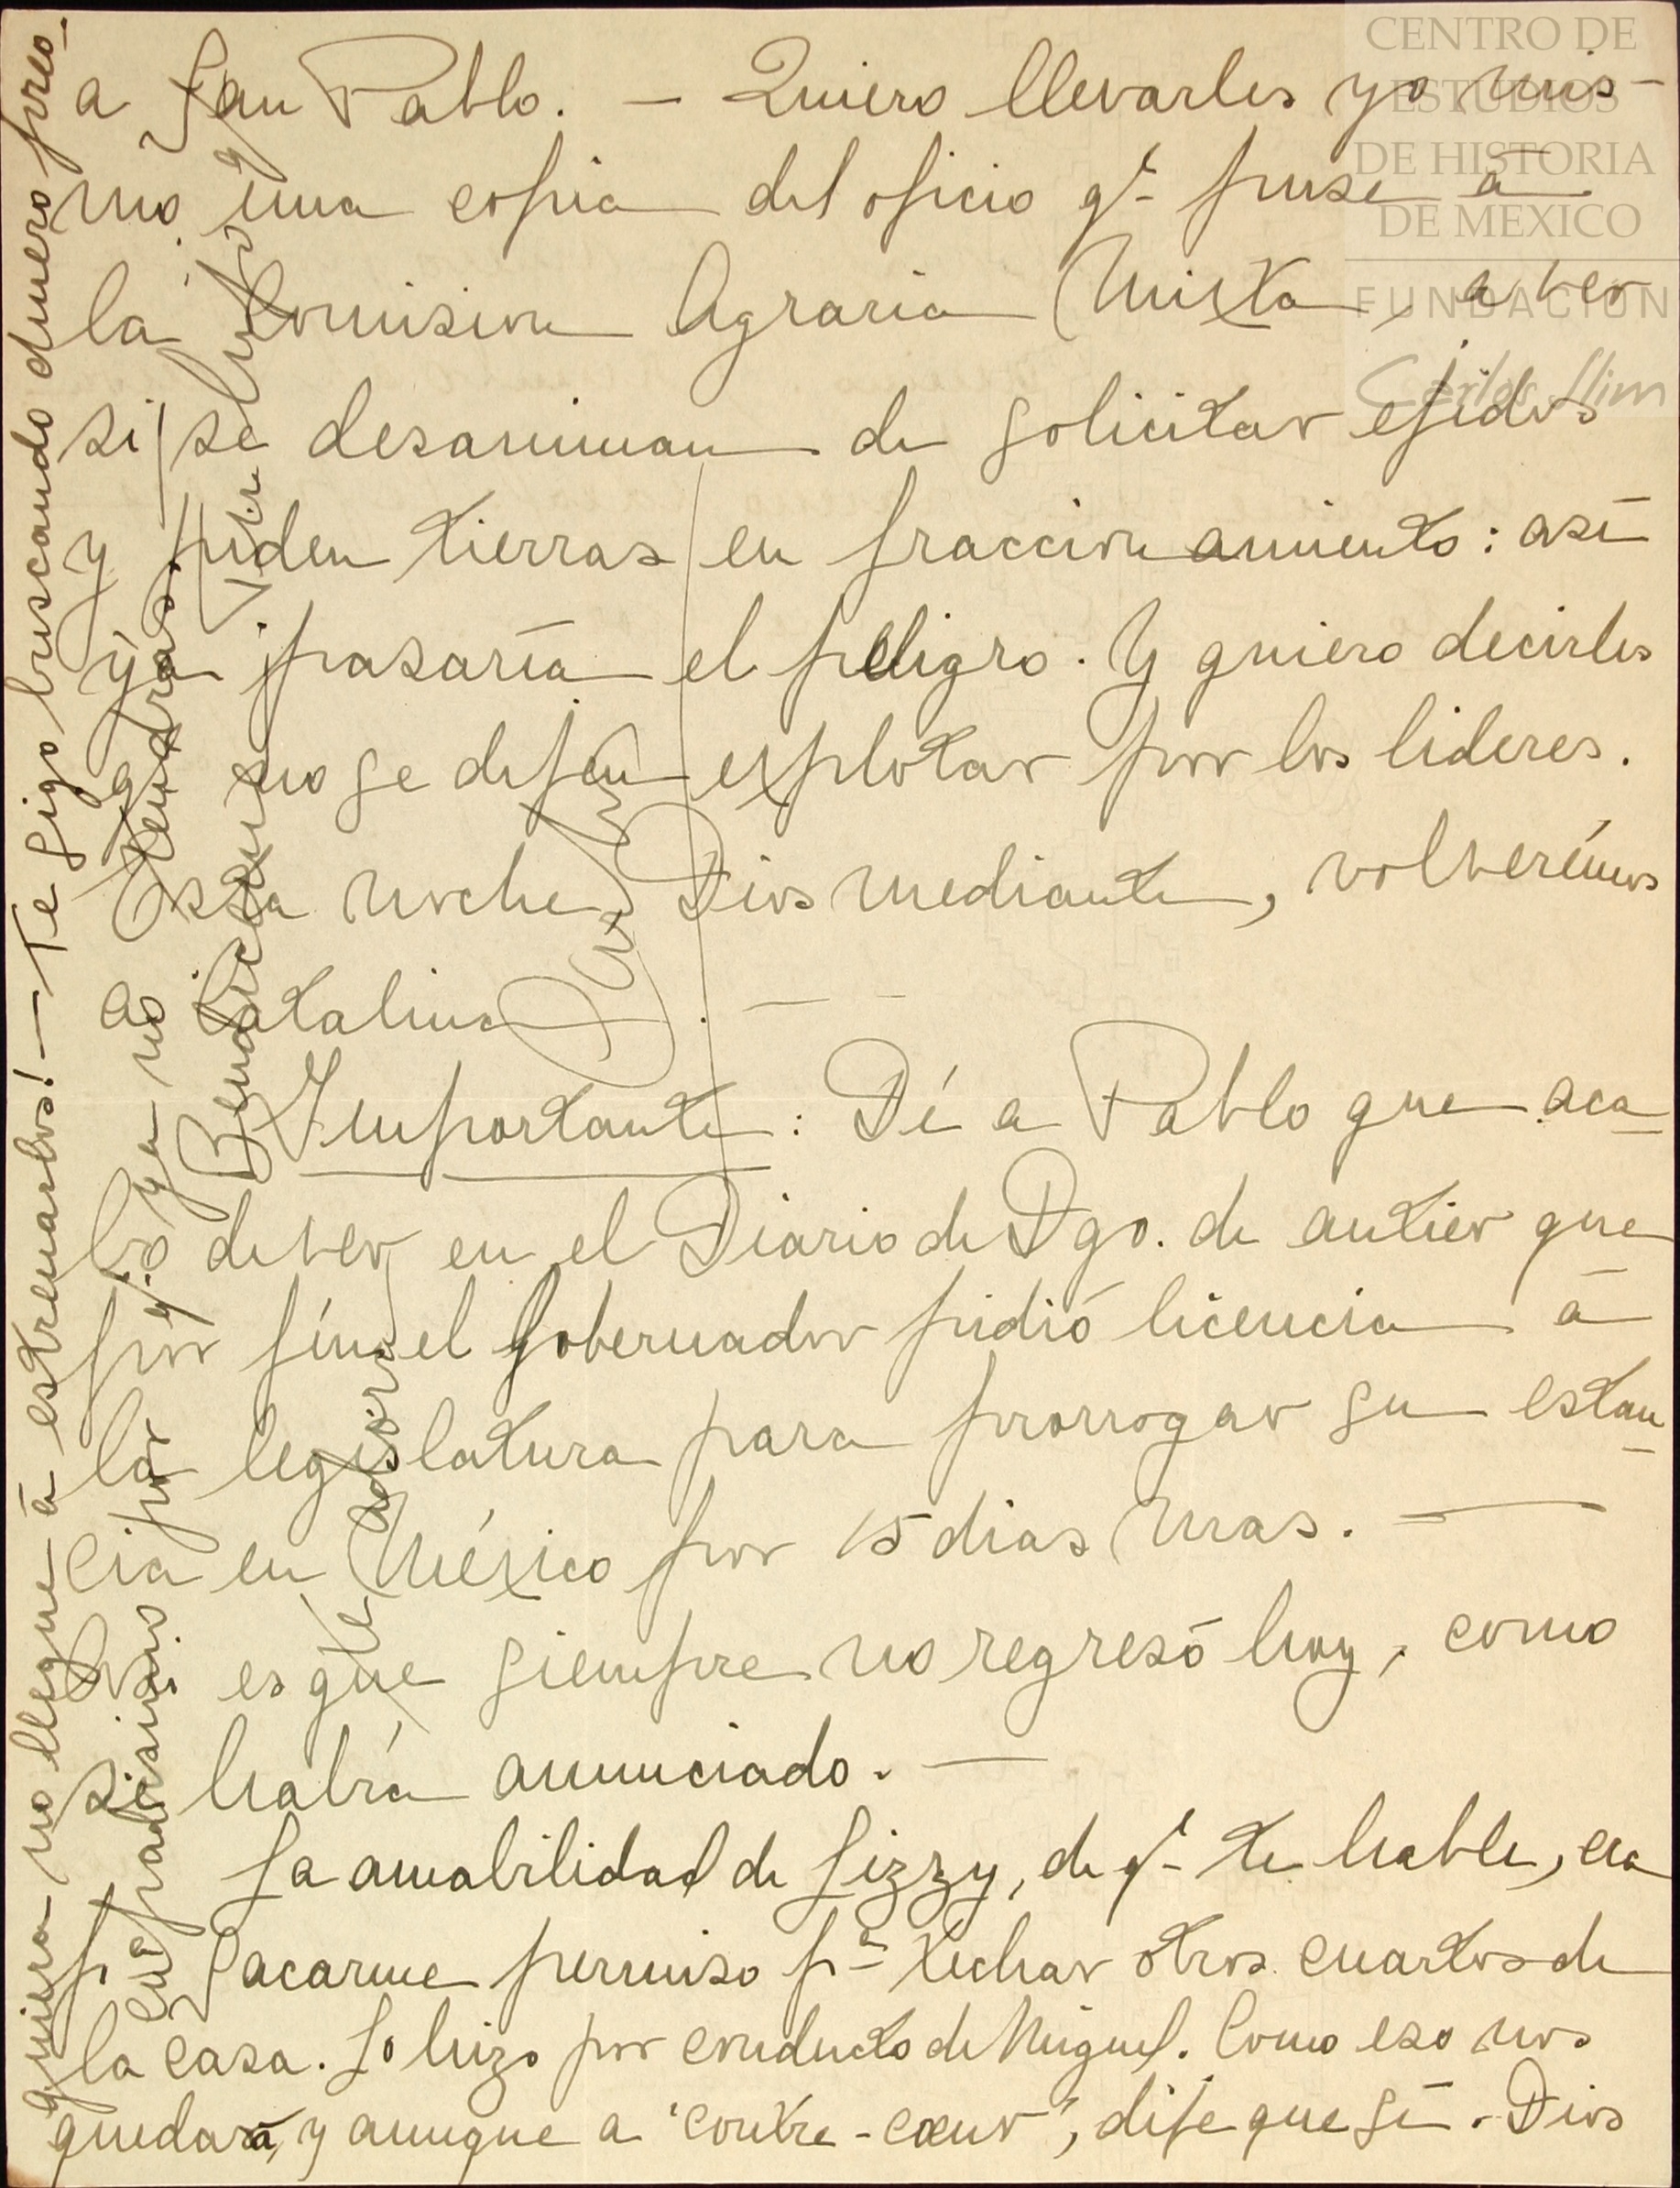 a San Pablo. — Quiero llevarles yo mis-
mo una copia del oficio qe puse a
la Comision Agraria Mixta, a ver
si se desaniman de solicitar ejidos
y piden tierras en fraccionamiento: así
ya pasaría el peligro. Y quiero decirles
q no se dejen explotar por los lideres.
Esta noche, Dios mediante, volverémos
a Catalina. —
Importante: Dí a Pablo que aca-
bo de ver en el Diario de Dgo. de antier que
por fín el Gobernador pidió licencia á
la legislatura para prorrogar su estan-
cia en México por 15 dias mas. —
Asi es que siempre no regresó hoy, como
se habia anunciado. —
La amabilidad de Lizzy, de qe te hablé, era
sacarme permiso pa techar otros cuartos de
la casa. Lo hizo por conducto de Miguel. Como eso nos
quedará, y aunque a "contre-coeur", dije que sí. Dios
quiera no llegue á estrenarlos! — Te sigo buscando dinero
cuidadisimo por
y ya no
tendrás
Bendiciendo
te adora
CENTRO DE
ESTUDIOS
DE HISTORIA
DE MEXICO
FUNDACION
Carlos Slim